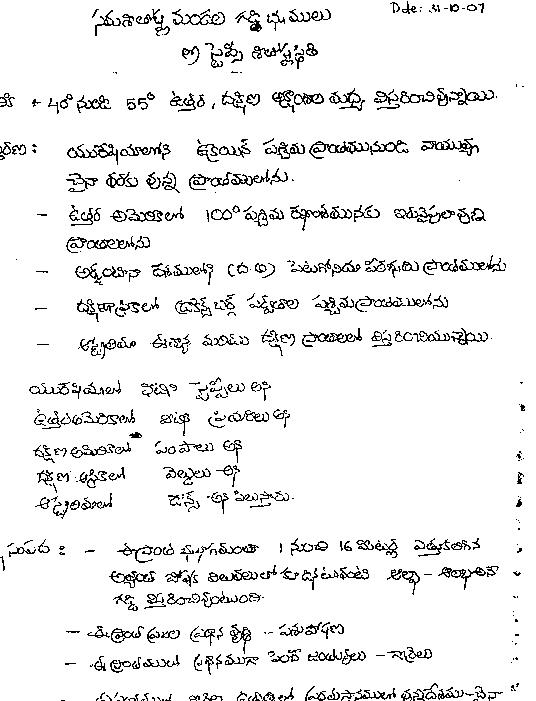 Date: 31-10-07
సమశీతోష్ణ మండల గడ్డి భూములు
(లేదా) స్టెప్పీ శీతోష్ణస్థితి
40° నుండి 55° ఉత్తర, దక్షిణ అక్షాంశాల మధ్య విస్తరించివున్నాయి.
యురేషియాలోని ఉక్రెయిన్ పశ్చిమ ప్రాంతమునుండి వాయువ్య
చైనా వరకు వున్న ప్రాంతములోను.
- ఉత్తర అమెరికాలో 100° పశ్చిమ రేఖాంశమునకు ఇరువైపులా వున్న
ప్రాంతాలలోను
- అర్జెంటీనా దేశములోని (ద.అ) పెటగోనియా పీఠభూమి ప్రాంతములోను
- దక్షిణాఫ్రికాలో డ్రాకెన్స్ బర్గ్ పర్వతాల పశ్చిమప్రాంతములోను
- ఆస్ట్రేలియా ఈశాన్య మరియు దక్షిణ ప్రాంతాలలో విస్తరించియున్నాయి.
యురేషియాలో వీటిని స్టెప్పీలు అని
ఉత్తరఅమెరికాలో వీటిని ప్రెయిరీలు అని
దక్షిణ అమెరికాలో పంపాలు అని
దక్షిణ ఆఫ్రికాలో వెల్డులు అని
ఆస్ట్రేలియాలో డౌన్స్ అని పిలుస్తారు.
సంపద : - ఈ ప్రాంత భూభాగమంతా 1 నుండి 16 మీటర్ల ఎత్తుకలిగిన
అత్యంత పోషక విలువలులో కూడినటువంటి ఆల్ఫా - ఆల్ఫా అనే
గడ్డి విస్తరించివుంటుంది.
- ఈ ప్రాంత ప్రజల ప్రధాన వృత్తి - పశుపోషణ
- ఈ ప్రాంతములో ప్రధానముగా పెంచే జంతువులు - గొర్రెలు